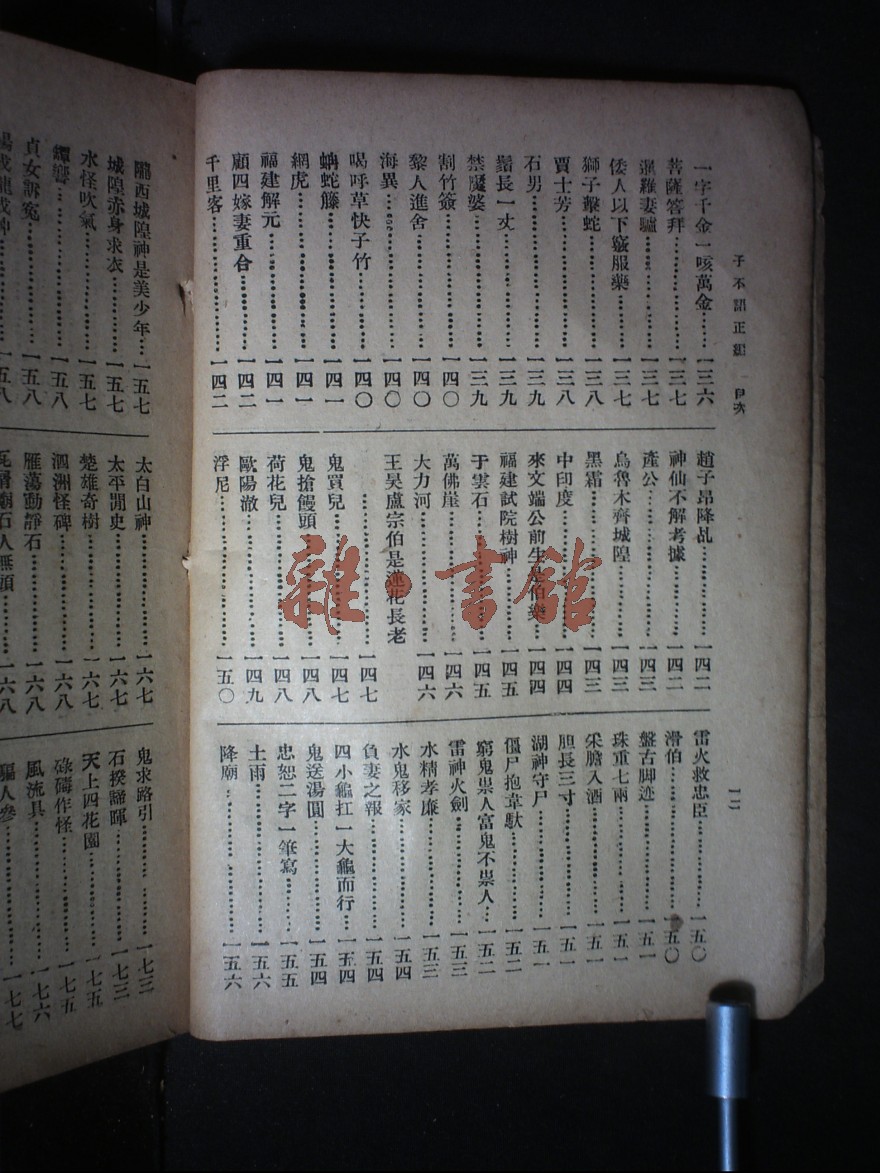 子不語正編 目次
一二
一字千金一咳萬金…一三六
菩薩答拜…一三七
暹羅妻驢…一三七
倭人以下竅服藥…一三七
獅子擊蛇…一三八
賈士芳…一三八
石男…一三九
鬍長一丈…一三九
禁魘婆…一三九
割竹簽…一四〇
黎人進舍…一四〇
海異…一四〇
喝呼草快子竹…一四〇
蚺蛇籐…一四一
網虎…一四一
福建解元…一四一
顧四嫁妻重合…一四二
千里客…一四二
趙子昂降乩…一四二
神仙不解考據…一四二
產公…一四三
烏魯木齊城隍…一四三
黑霜…一四三
中印度…一四四
來文端公前生是伯樂…一四四
福建試院樹神…一四五
于雲石…一四五
萬佛崖…一四六
大力河…一四六
王昊廬宗伯是蓮花長老
…一四七
鬼買兒…一四七
鬼搶饅頭…一四八
荷花兒…一四八
歐陽澈…一四九
浮尼…一五〇
雷火救忠臣…一五〇
滑伯…一五〇
盤古脚迹…一五一
珠重七兩…一五一
采膽入酒…一五一
胆長三寸…一五一
湖神守尸…一五一
僵尸抱韋馱…一五二
窮鬼祟人富鬼不祟人…一五二
雷神火劍…一五三
水精孝廉…一五三
水鬼移家…一五四
負妻之報…一五四
四小龜扛一大龜而行…一五四
鬼送湯圓…一五四
忠恕二字一筆寫…一五五
土雨…一五六
降廟…一五六
隴西城隍神是美少年…一五七
城隍赤身求衣…一五七
水怪吹氣…一五七
罈響…一五八
貞女訴冤…一五八
一五八
太白山神…一六七
太平閒史…一六七
楚雄奇樹…一六七
泗洲怪碑…一六八
雁蕩動靜石…一六八
石人無頭…一六八
鬼求路引…一七三
石揆諦暉…一七三
天上四花園…一七五
碌碡作怪…一七五
風流具…一七六
驅人參…一七七
雜·書館